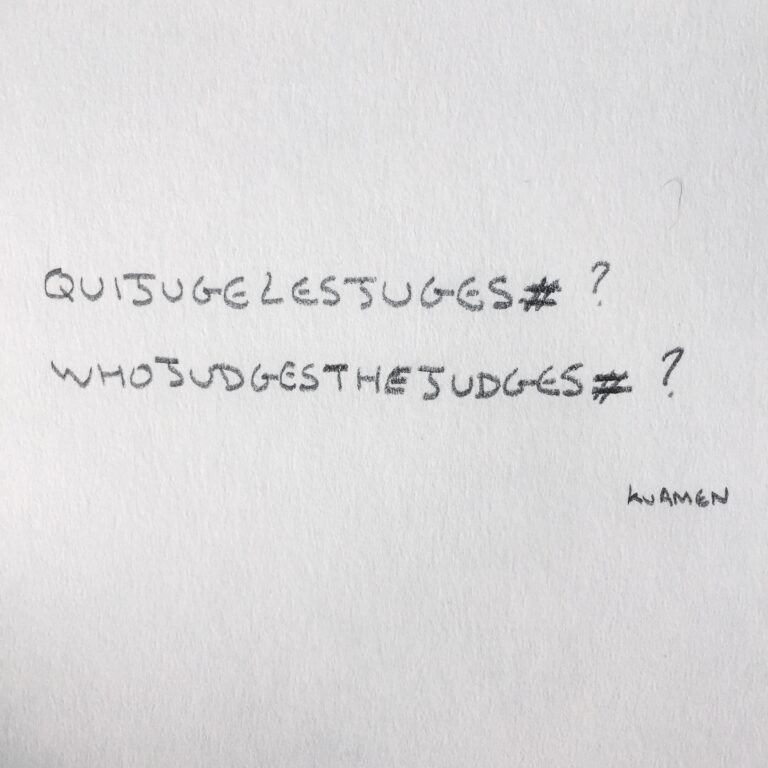 QUIJUGELESJUGES# ?
WHOJUDGESTHEJUDGES# ?
KUAMEN